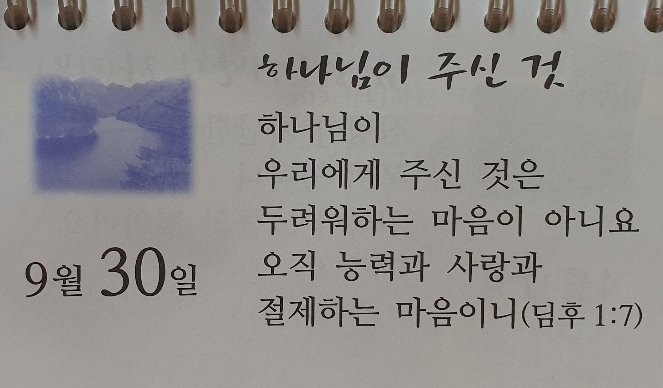 하나님이 주신 것
하나님이
우리에게 주신 것은
두려워하는 마음이 아니요
오직 능력과 사랑과
절제하는 마음이니(딤후 1:7)
9월 30일